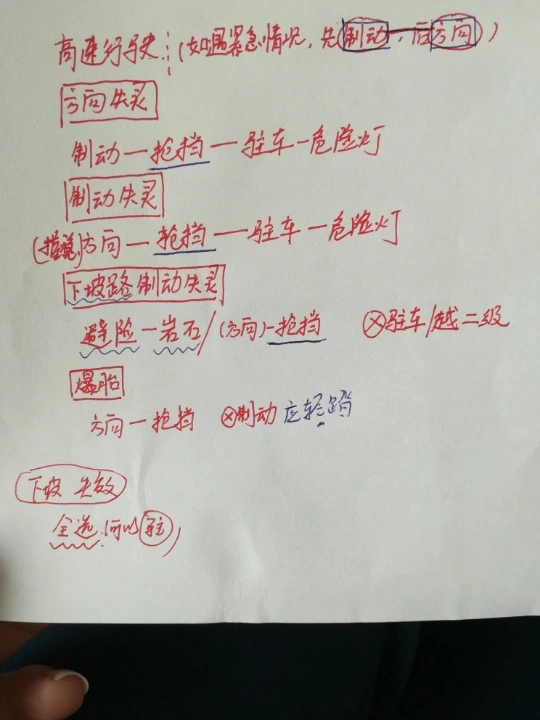 高速行驶:(如遇紧急情况,先制动,后方向)
方向失灵
制动—抢挡—驻车—危险灯
制动失灵
方向—抢挡—驻车—危险灯
下坡路制动失灵
避险—岩石/(方向)—抢挡 ⊗驻车/越二级
爆胎
方向—抢挡 ⊗制动 应轻踏
下坡 失效
全选(可以驻)